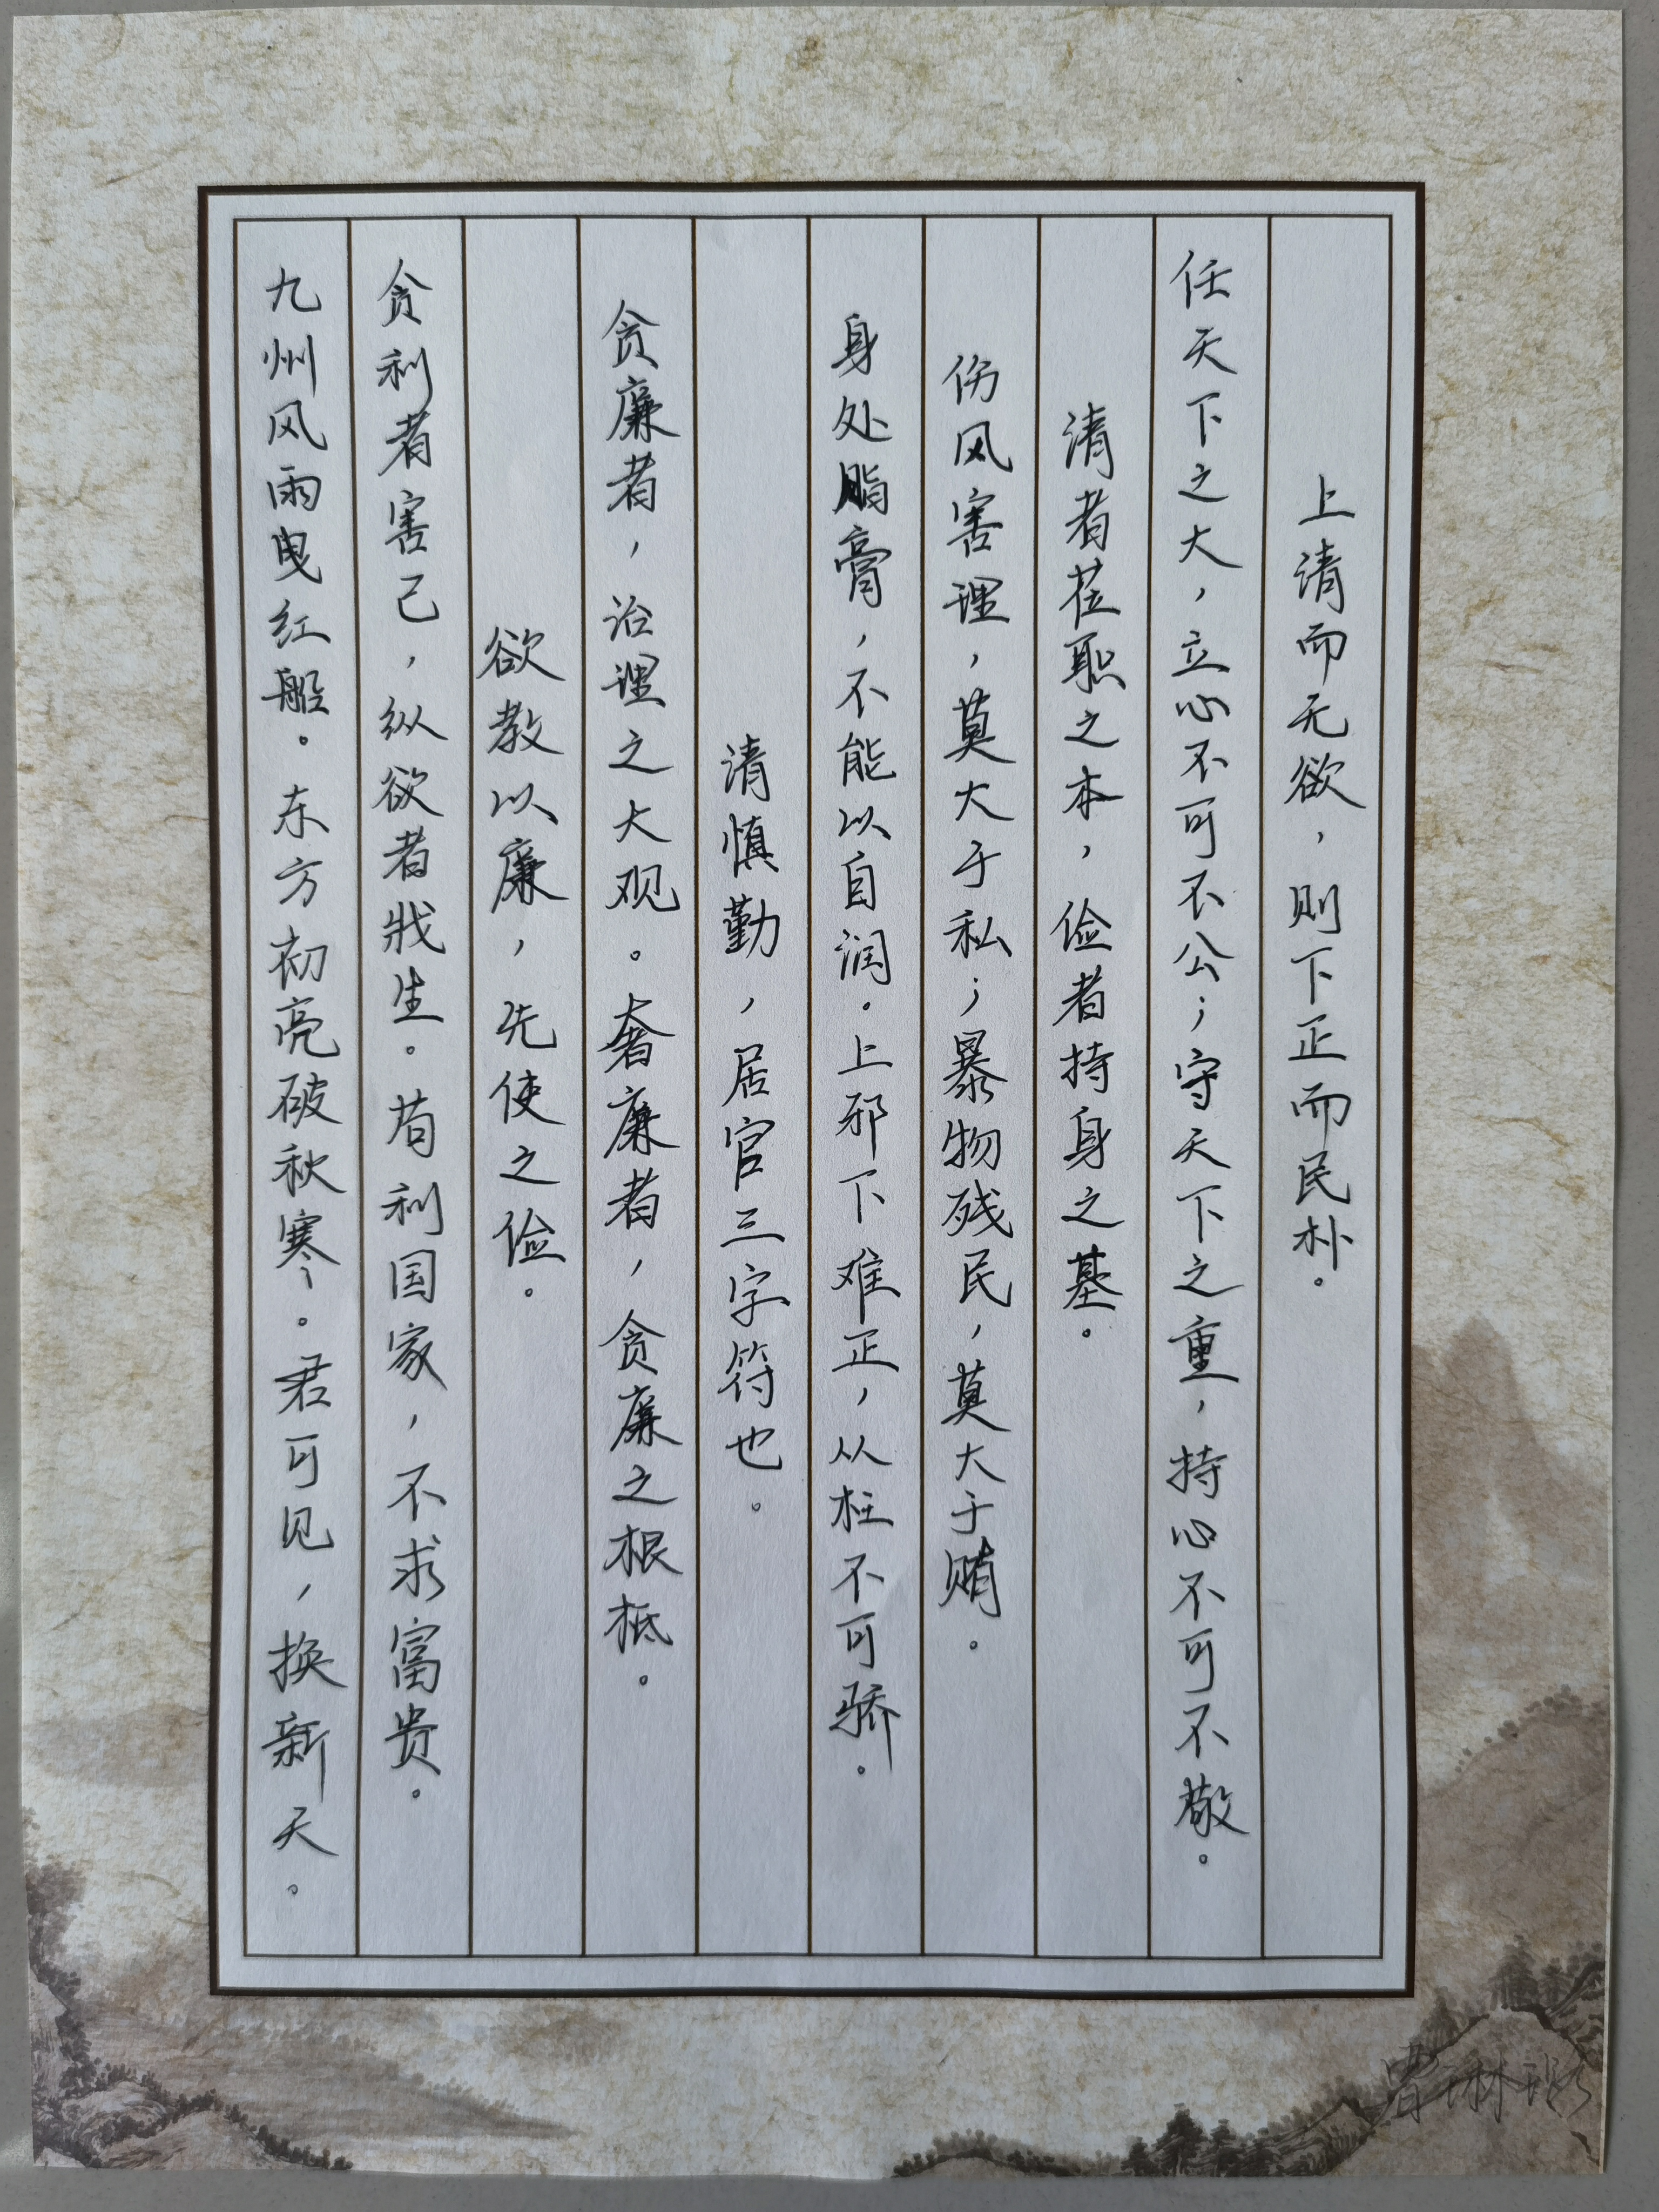 上清而无欲，则下正而民朴。
任天下之大，立心不可不公；守天下之重，持心不可不敬。
清者莅职之本，俭者持身之基。
伤风害理，莫大于私；暴物残民，莫大于贿。
身处脂膏，不能以自润。上邪下难正，从枉不可矫。
清慎勤，居官三字符也。
贪廉者，治理之大观。奢廉者，贪廉之根柢。
欲教以廉，先使之俭。
贪利者害己，纵欲者戕生。苟利国家，不求富贵。
九州风雨曳红船。东方初亮破秋寒。君可见，换新天。